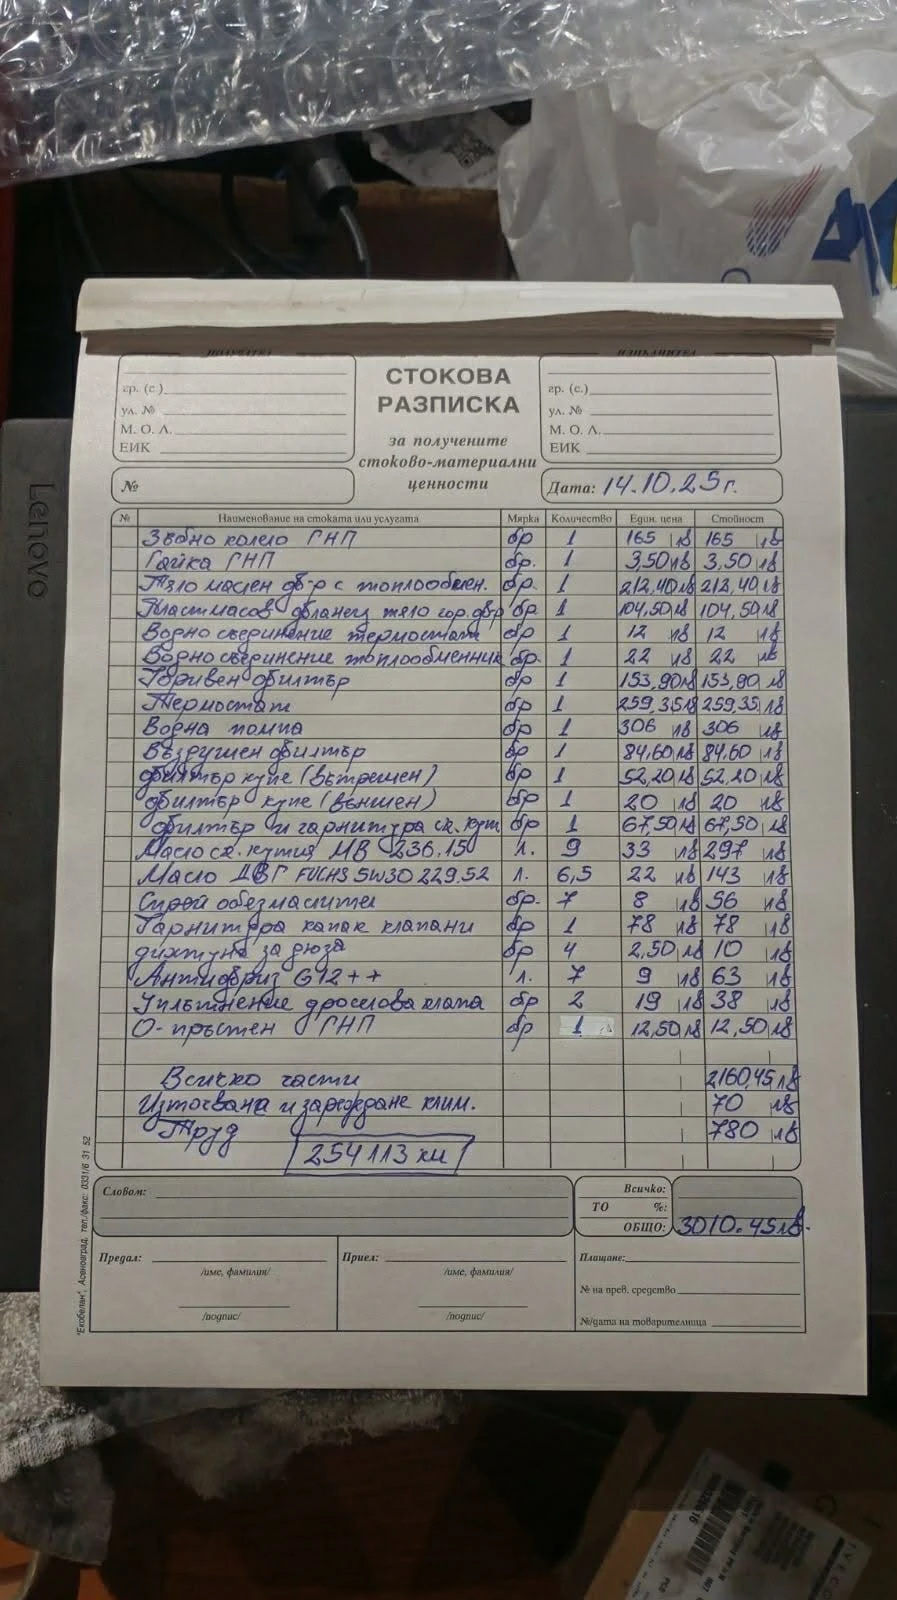 Lenovo
ПОЛУЧАТЕЛ
ИЗПЪЛНИТЕЛ
гр. (с.)
ул. №
М. О. Л.
ЕИК
СТОКОВА
РАЗПИСКА
за получените
стоково-материални
ценности
гр. (с.)
ул. №
М. О. Л.
ЕИК
№
Дата: 14.10.25г.
№ Наименование на стоката или услугата Мярка Количество Един. цена Стойност
Зъбно колело ГНП бр 1 165 лв 165 лв
Гайка ГНП бр. 1 3,50 лв 3,50 лв
Тяло маслен ф-р с топлообмен. бр. 1 212,40 лв 212,40 лв
Пластмасов фланец тяло гор. ф-р бр. 1 104,50 лв 104,50 лв
Водно съединение термостат бр 1 12 лв 12 лв
Водно съединение топлообменник бр. 1 22 лв 22 лв
Горивен филтър бр 1 153,90 лв 153,90 лв
Термостат бр 1 259,35 лв 259,35 лв
Водна помпа бр 1 306 лв 306 лв
Въздушен филтър бр 1 84,60 лв 84,60 лв
филтър купе (вътрешен) бр 1 52,20 лв 52,20 лв
филтър купе (външен) бр 1 20 лв 20 лв
филтър и гарнитура ск. кут бр 1 67,50 лв 67,50 лв
Масло ск. кутия МВ 236.15 л. 9 33 лв 297 лв
Масло ДВГ FUCHS 5W30 229.52 л. 6,5 22 лв 143 лв
Спрей обезмаслител бр. 7 8 лв 56 лв
Гарнитура капак клапани бр 1 78 лв 78 лв
дихтунг за дюза бр 4 2,50 лв 10 лв
Антифриз G12++ л. 7 9 лв 63 лв
Уплътнение дроселова клапа бр 2 19 лв 38 лв
О-пръстен ГНП бр 1 12,50 лв 12,50 лв
Всичко части 2160,45 лв
Източване и зареждане клим. 70 лв
Труд 780 лв
254113 км
Словом:
Всичко:
ТО %:
ОБЩО: 3010.45лв.
Предал:
/име, фамилия/
/подпис/
Приел:
/име, фамилия/
/подпис/
Плащане:
№ на прев. средство
№/дата на товарителница
"Екобелан", Асеновград, тел./факс: 0331/6 31 52